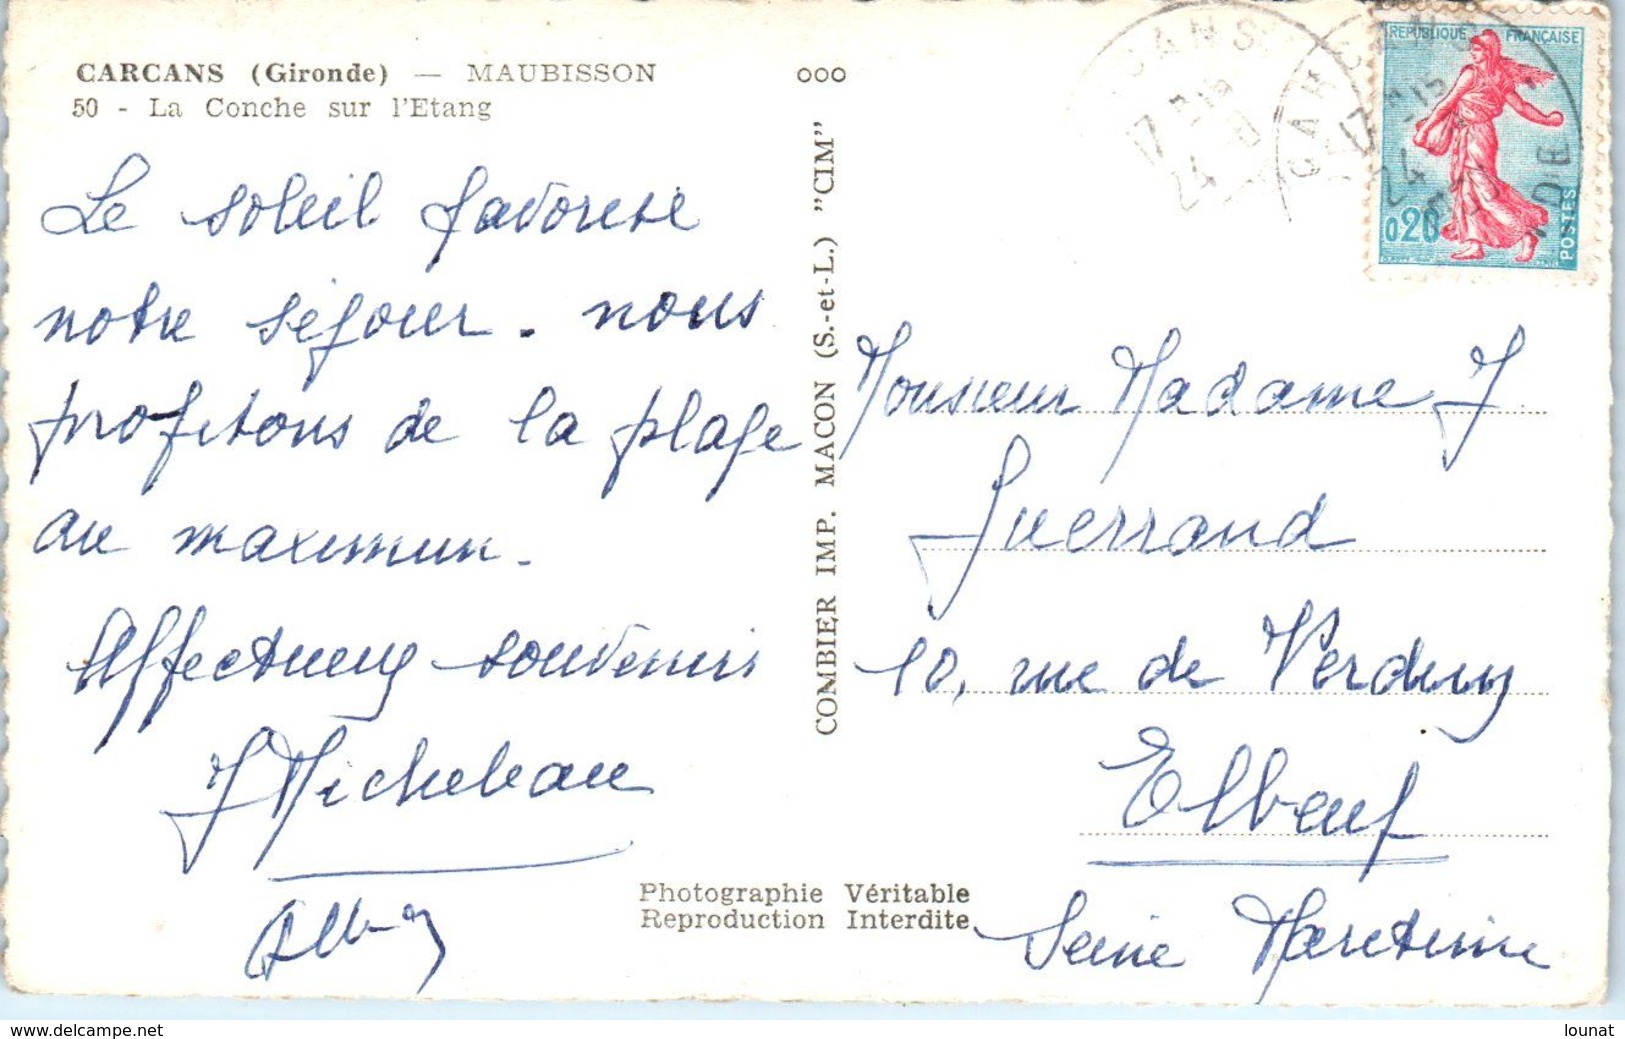 CARCANS (Gironde) — MAUBISSON
50 - La Conche sur l'Etang
Le soleil favorise
notre séjour. nous
profitons de la plage
au maximum.
Affectueux souvenirs
J Micheleau
COMBIER IMP. MACON (S.-et-L.) "CIM"
ooo
REPUBLIQUE FRANÇAISE
0,20
POSTES
CARCANS
17 H 15
24
Monsieur Madame J
Guerrand
10, rue de Verdun
Elbeuf
Seine Maritime
Photographie Véritable
Reproduction Interdite
www.delcampe.net
lounat